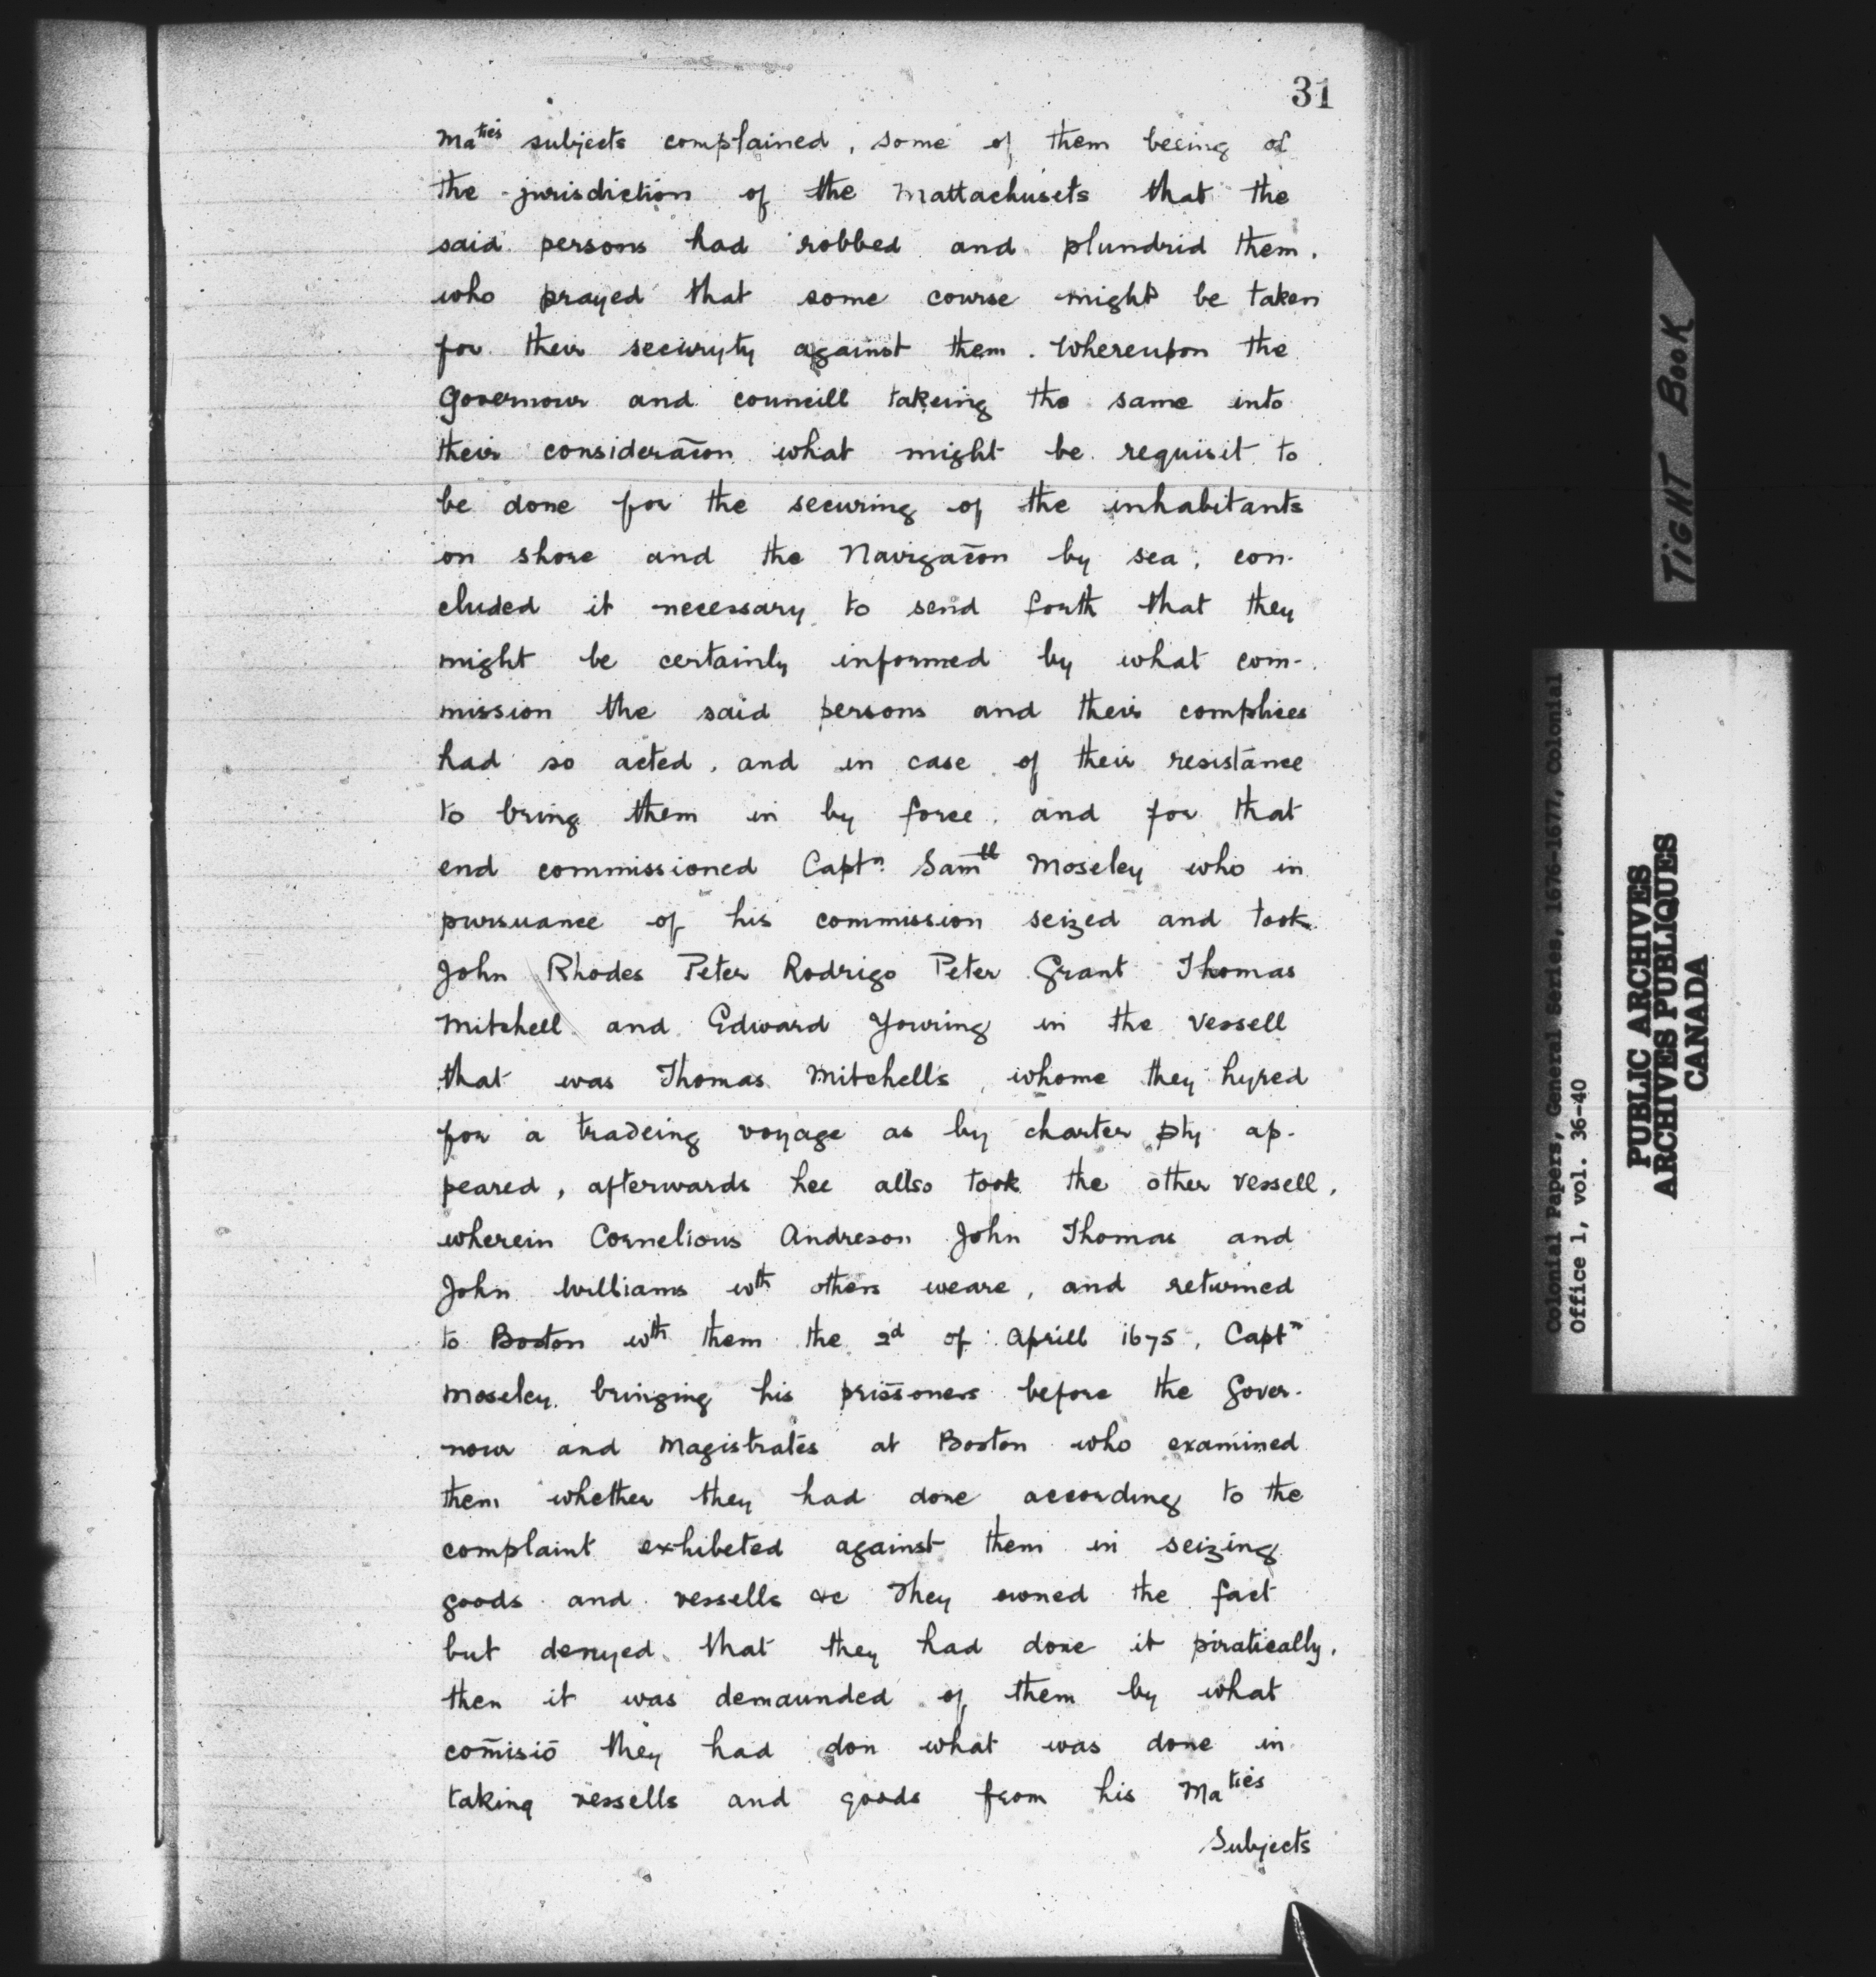 31
Maties subjects complained, some of them beeing of
the jurisdiction of the Mattachusets that the
said persons had robbed and plundrid them.
who prayed that some course might be taken
for their securyty against them. Whereupon the
Governour and councill takeing the same into
their consideracõn what might be requisit to
be done for the securing of the inhabitants
on shore and the Navigacõn by sea, con-
cluded it necessary to send forth that they
might be certainly informed by what com-
mission the said persons and their complices
had so acted, and in case of their resistance
to bring them in by force, and for that
end commissioned Captn Samll Moseley who in
pursuance of his commission seized and took
John Rhodes Peter Rodrigo Peter Grant Thomas
Mitchell and Edward Youring in the vessell
that was Thomas Mitchells, whome they hyred
for a tradeing voyage as by charter pty ap-
peared, afterwards hee allso took the other vessell,
wherein Cornelious Andreson John Thomas and
John Williams wth others weare, and returned
to Boston wth them the 2d of Aprill 1675, Captn
Moseley bringing his prissoners before the Gover-
nour and Magistrates at Boston who examined
them whether they had done according to the
complaint exhibeted against them in seizing
goods and vessells &c They owned the fact
but denyed that they had done it piratically,
then it was demaunded of them by what
com̄isiō they had don what was done in
taking vessells and goods from his Maties
Subjects
TIGHT BOOK
Colonial Papers, General Series, 1676-1677, Colonial
Office 1, vol. 36-40
PUBLIC ARCHIVES
ARCHIVES PUBLIQUES
CANADA